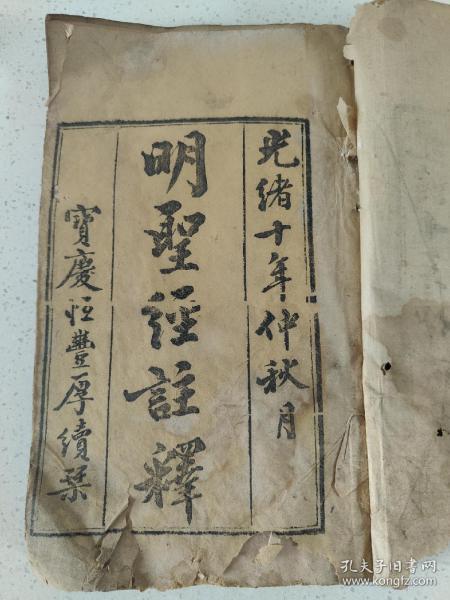 光緒十年仲秋月
明聖經註釋
寶慶恒豐厚續栞
孔夫子旧书网
www.kongfz.com